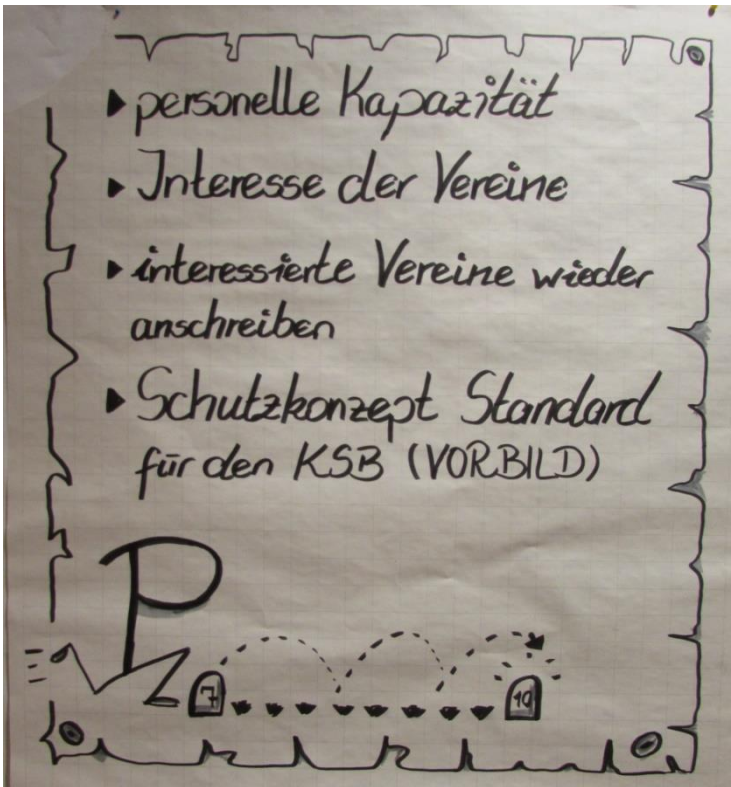 ▶ personelle Kapazität
▶ Interesse der Vereine
▶ interessierte Vereine wieder
anschreiben
▶ Schutzkonzept Standard
für den KSB (VORBILD)
P
7 10